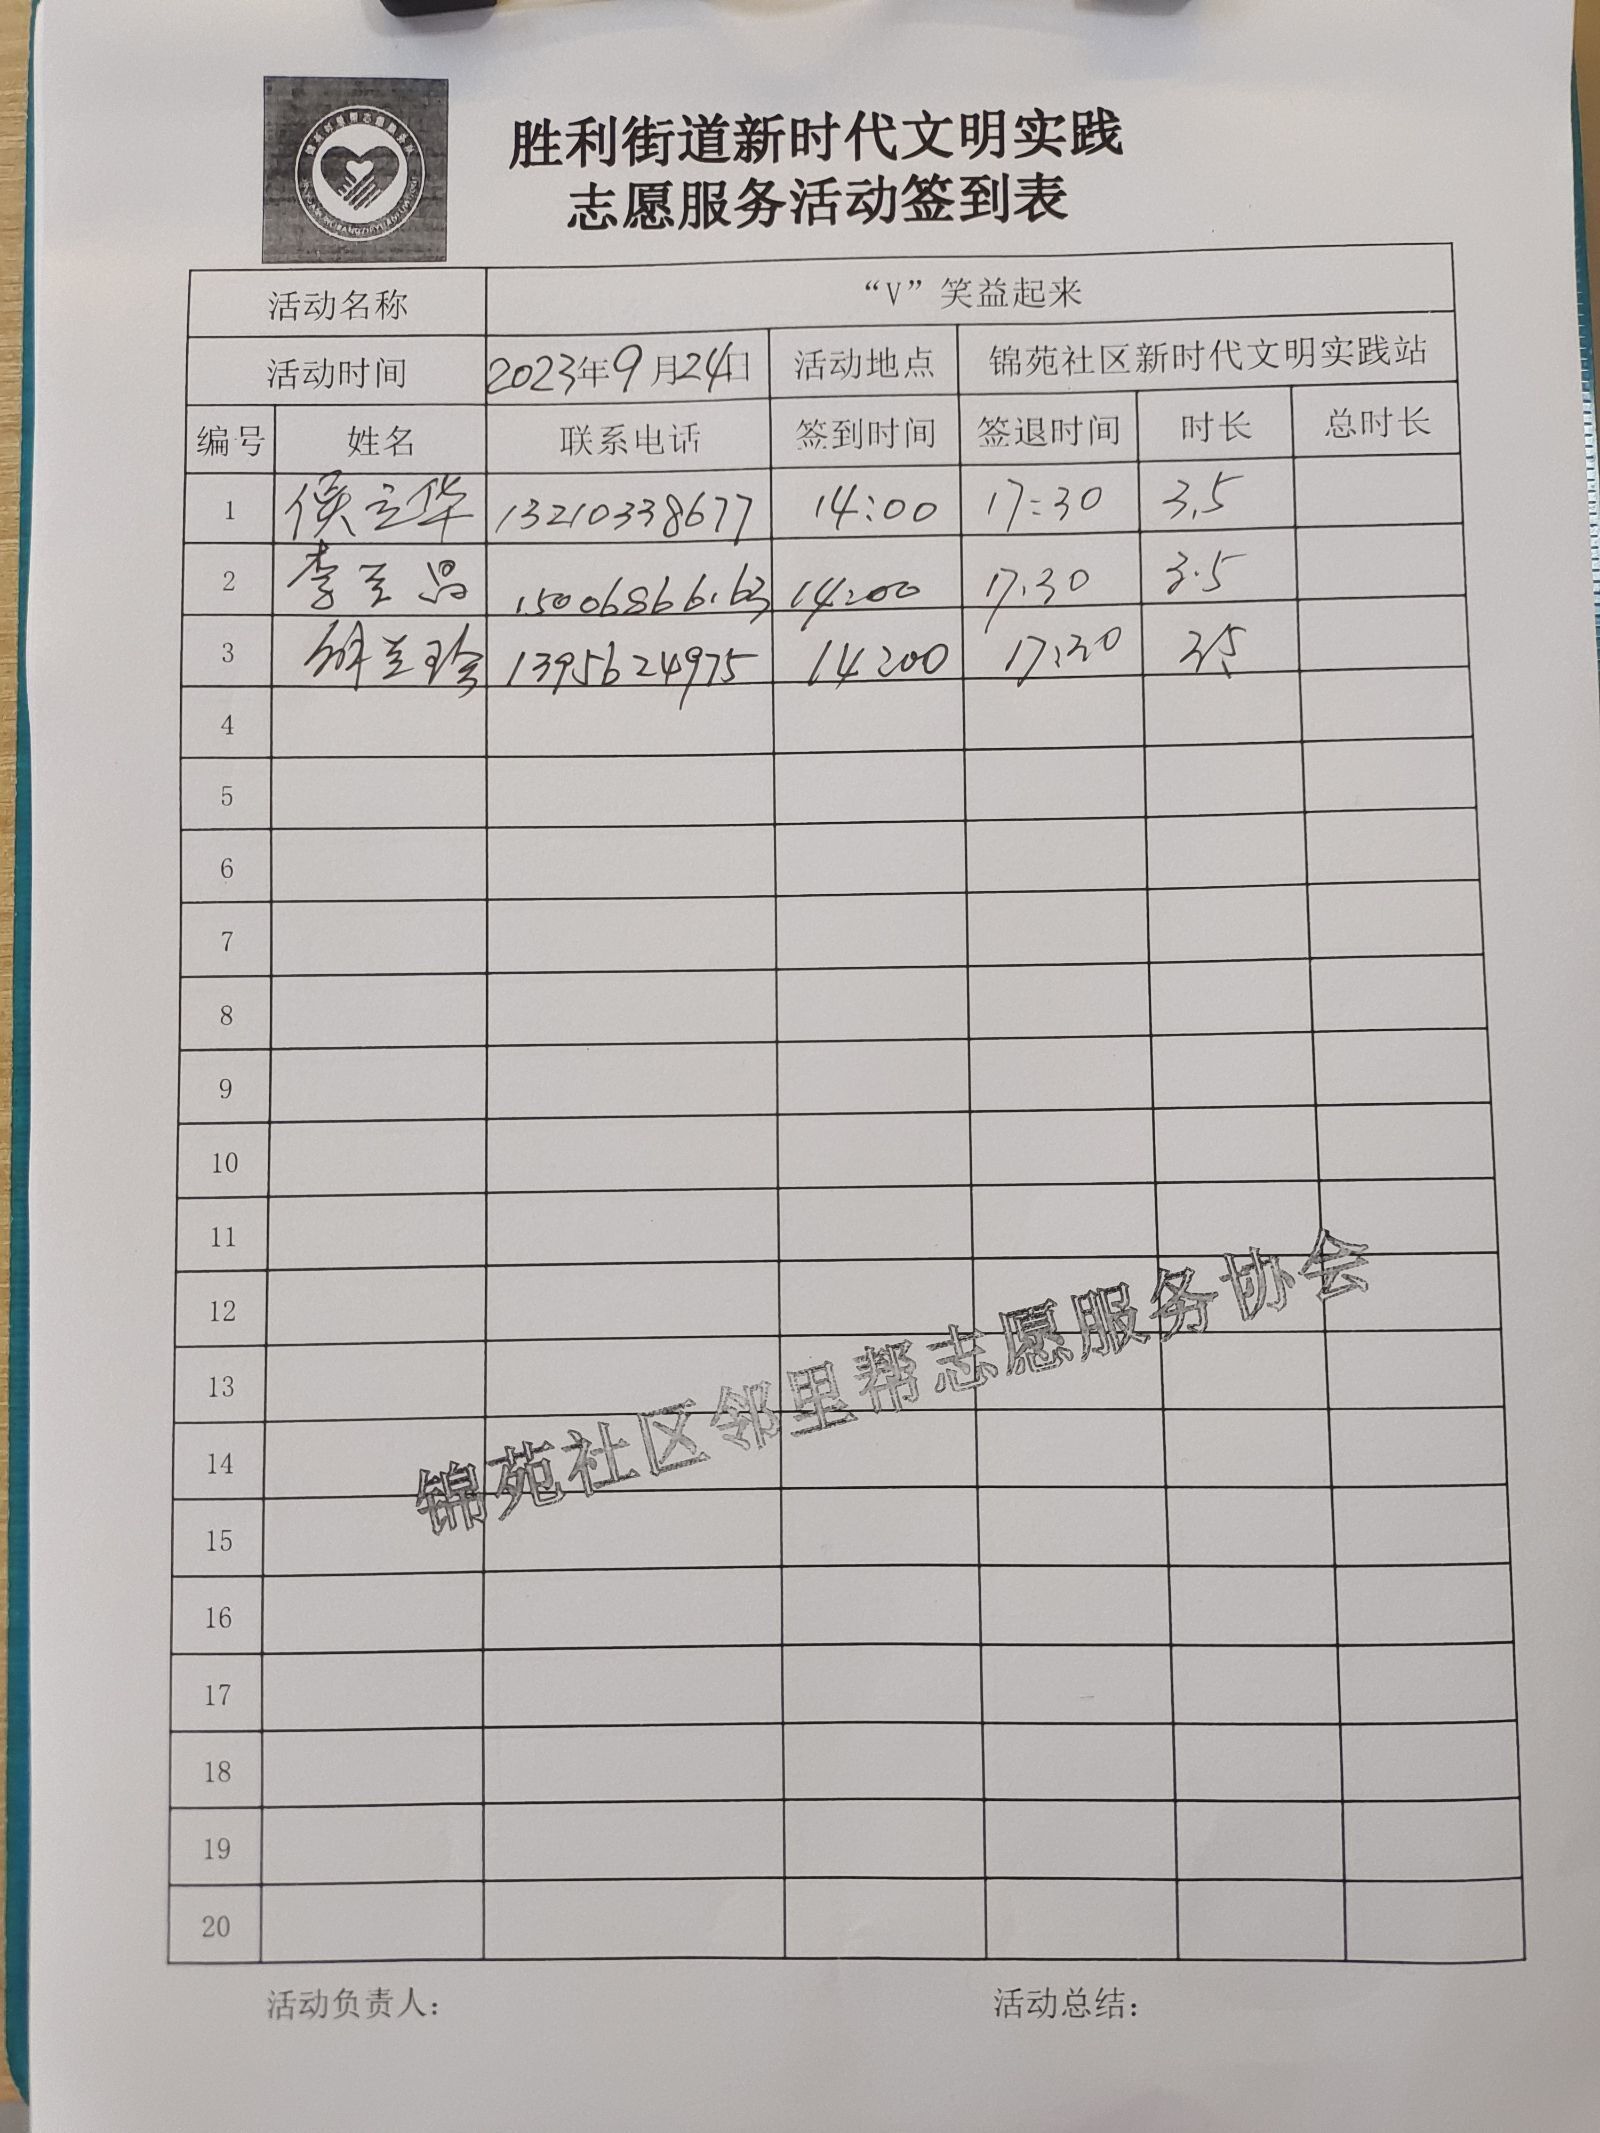 胜利街道新时代文明实践
志愿服务活动签到表
活动名称 “V”笑益起来
活动时间 2023年9月24日 活动地点 锦苑社区新时代文明实践站
编号 姓名 联系电话 签到时间 签退时间 时长 总时长
1 侯立华 13210338677 14:00 17:30 3.5
2 李兰昌 15006866163 14:00 17:30 3.5
3 兰珍 1395624975 14:00 17:30 3.5
4
5
6
7
8
9
10
11
12
13
14
15
16
17
18
19
20
锦苑社区邻里帮志愿服务协会
活动负责人： 活动总结：